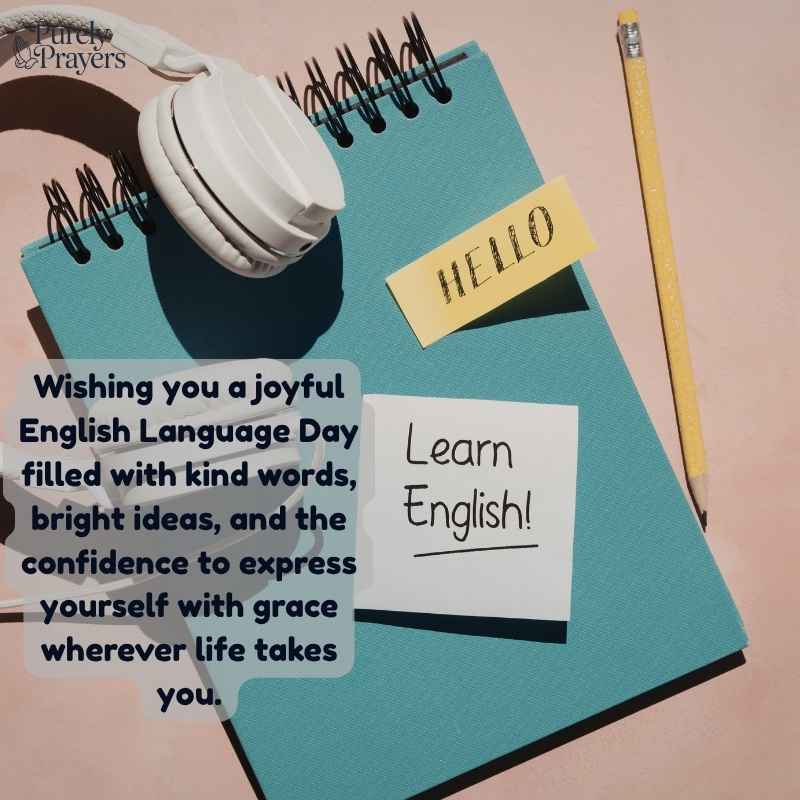 Purely
Prayers
HELLO
Learn
English!
Wishing you a joyful
English Language Day
filled with kind words,
bright ideas, and the
confidence to express
yourself with grace
wherever life takes
you.